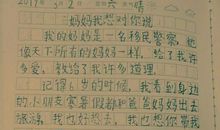 2019年3月2日 六 晴
妈妈我想对你说
我的妈妈是一名移民警察,她
像天下所有的妈妈一样,给了我许
多爱,教给了我许多道理。
记得6岁的时候,我看到身边
的小朋友拿着假都和爸爸妈妈出去
旅游,我也好想去,我也想你带我